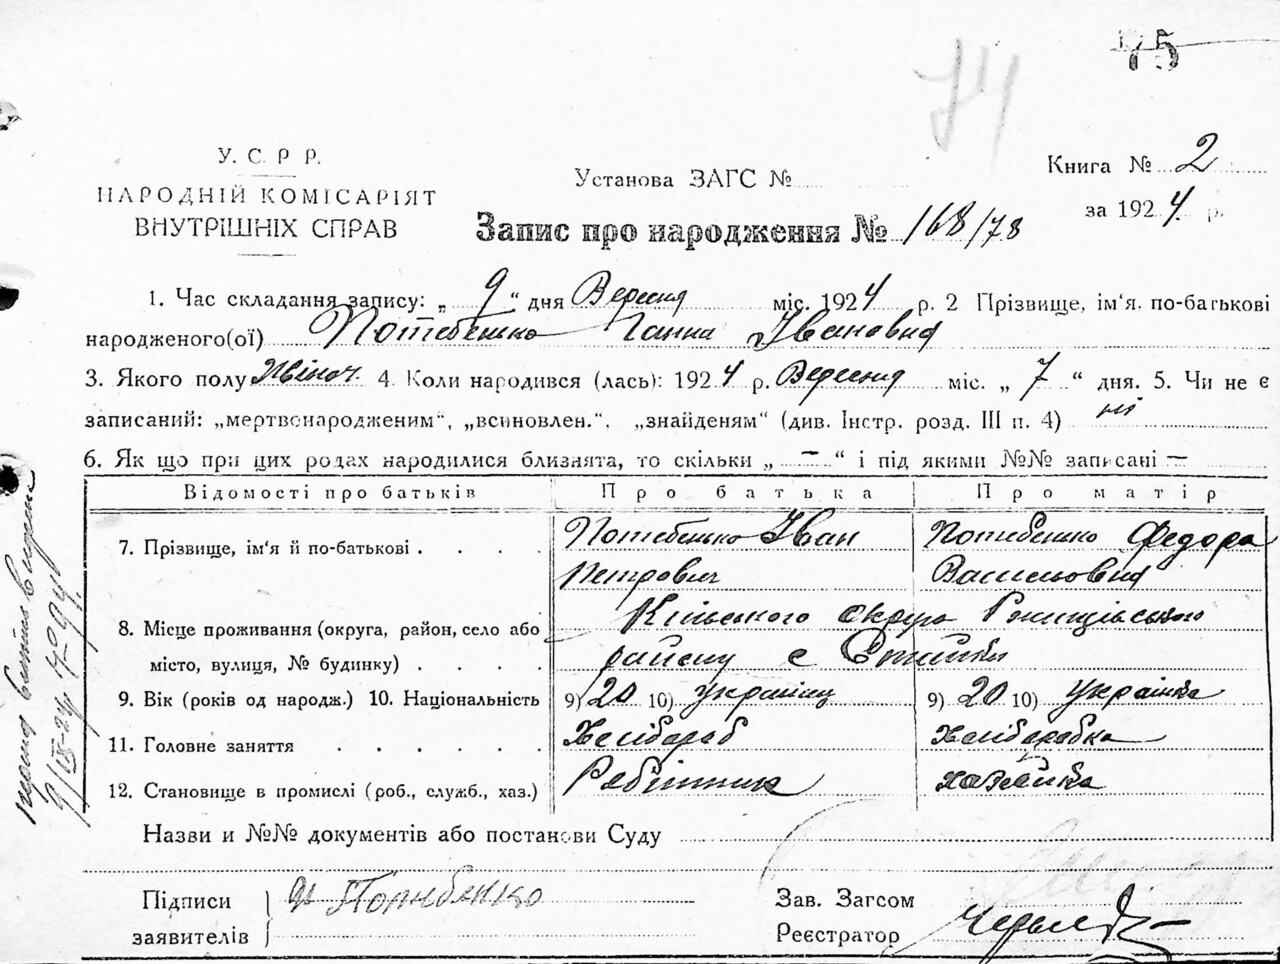 75
74
У. С. Р Р.
НАРОДНІЙ КОМІСАРІЯТ
ВНУТРІШНІХ СПРАВ
Установа ЗАГС №
Книга № 2
за 1924 р.
Запис про народження № 168/78
1. Час складання запису: „ 9 “ дня Вересня міс. 1924 р. 2 Прізвище, ім'я, по-батькові
народженого(ої) Потебенько Ганна Івановна
3. Якого полу жіноч. 4. Коли народився (лась): 1924 р. Вересня міс. „ 7 “ дня. 5. Чи не є
записаний: „мертвонародженим“, „всиновлен.“, „знайденям“ (див. Інстр. розд. III п. 4) ні
6. Як що при цих родах народилися близнята, то скільки „ — “ і під якими №№ записані —
Відомості про батьків Про батька Про матір
7. Прізвище, ім'я й по-батькові . . . . Потебенько Іван Потебенько Федора
Петрович Василовна
8. Місце проживання (округа, район, село або Київського округа Ржищівського
місто, вулиця, № будинку) . . . . району с Стайки
9. Вік (років од народж.) 10. Національність 9) 20 10) Українец 9) 20 10) Українка
11. Головне заняття . . . . . Хлібараб Хлібарабка
12. Становище в промислі (роб., служб., хаз.) Робітник хазяйка
Назви и №№ документів або постанови Суду
Підписи
заявителів
Потебенко
Зав. Загсом
Реєстратор
9/IX-24